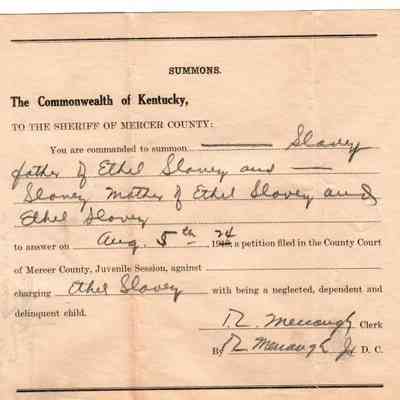 SUMMONS.
The Commonwealth of Kentucky,
TO THE SHERIFF OF MERCER COUNTY:
You are commanded to summon Slavey
father of Ethel Slavey and
Slavey Mother of Ethel Slavey and
Ethel Slavey
to answer on Aug. 5th 1924, a petition filed in the County Court
of Mercer County, Juvenile Session, against
charging Ethel Slavey with being a neglected, dependent and
delinquent child.
Menaugh Clerk
By Menaugh Jr D. C.